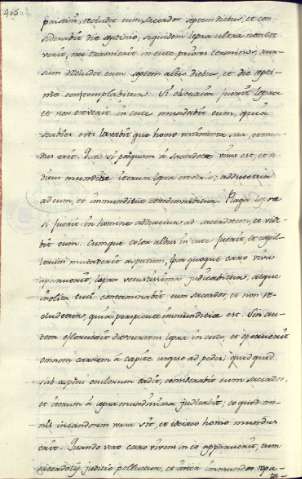 405.
pristin, recludet eum sacerdos septem diebus, et con
siderabit die septimo, siquidem lepra ultra non cre
verit, nec transierit in cute priores terminos, rur
sum recludet eum septem aliis diebus, et die septi
mo contemplabitur. Si obscurior fuerit lepra
et non creverit in cute mundabit eum, quia
scabies est: lavabit que homo vestimenta sua, et mun
dus erit. Quod si postquam a sacerdote visus est, et
redditus munditiæ iterum lepra creverit, adducetur
ad eum, et immunditiæ condemnabitur. Plaga lepræ
si fuerit in homine adducetur ad sacerdotem, et vide
bit eum. Cumque color albus in cute fuerit, et capil
lorum mutaverit aspectum, ipsa quoque caro viva
apparuerit, lepra vetustissima judicabitur, atque
inolita cuti, contaminabit eum sacerdos, et non re
cludet, quia perspicuæ immunditiæ est. Sin au
tem effloruerit discurrens lepra in cute, et operuerit
omnem carnem à capite usque ad pedes, quidquid
sub aspectu oculorum cadit, considerabit eum sacerdos,
et teneri lepra mundissima judicabit, eo quod om
nis in candorem versa sit, et idcirco homo mundus
erit. Quando vero caro vivens in eo apparuerit, tunc
sacerdotis judicio polluetur, et inter immundos repu=